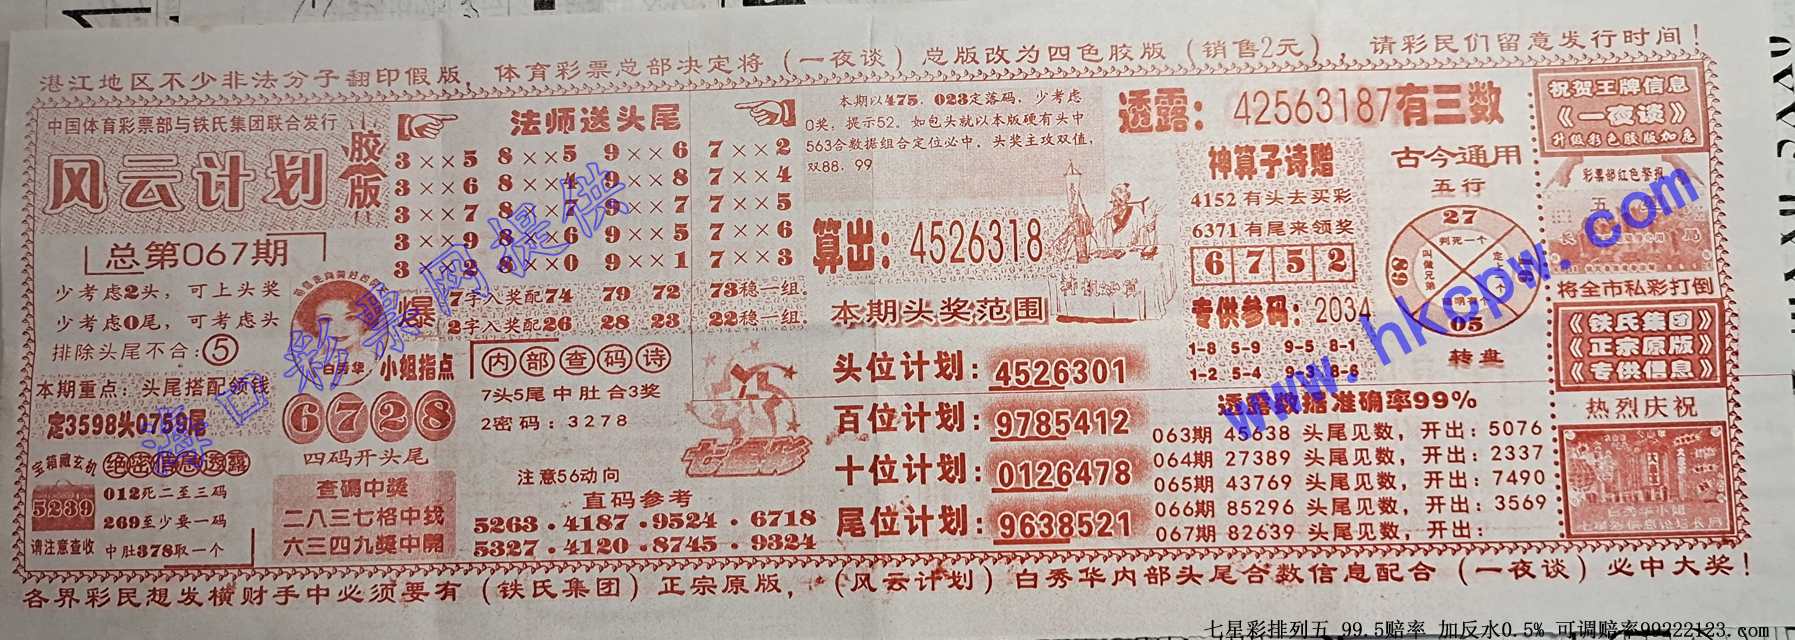 湛江地区不少非法分子翻印假版，体育彩票总部决定将（一夜谈）总版改为四色胶版（销售2元），请彩民们留意发行时间！
中国体育彩票部与铁氏集团联合发行
风云计划
胶版
总第067期
少考虑2头，可上头奖
少考虑0尾，可考虑头
排除头尾不合：5
本期重点：头尾搭配领钱
定3598头0759尾
宝箱藏玄机
绝密信息透露
5239
012死二至三码
269至少要一码
请注意查收
中肚378取一个
法师送头尾
3××5 8××5 9××6 7××2
3××6 8××4 9××8 7××4
3××7 8××7 9××7 7××5
3××9 8××6 9××5 7××6
3××2 8××0 9××1 7××3
相信是向简好的朋友
白秀华
爆
7字入奖配74 79 72 73稳一组.
2字入奖配26 28 23 22稳一组.
小姐指点
6728
四码开头尾
查碼中獎
二八三七格中线
六三四九獎中開
内部查码诗
7头5尾中肚合3奖
2密码：3278
注意56动向
直码参考
5263．4187．9524．6718
5327．4120．8745．9324
七星彩
本期以475．023定落码，少考虑
0奖，提示52．如包头就以本版硬有头中
563合数据组合定位必中．头奖主攻双值，
双88．99
算出：4526318
本期头奖范围
头位计划：4526301
百位计划：9785412
十位计划：0126478
尾位计划：9638521
透露：42563187有三数
神算子诗赠
4152有头去买彩
6371有尾来领奖
6752
专供参码：2034
1-8 5-9 9-5 8-1
1-2 5-4 9-3 8-6
古今通用
五行
27
判死一个
叫做兄弟
89
05
转盘
透露数据准确率99%
063期 45638 头尾见数，开出：5076
064期 27389 头尾见数，开出：2337
065期 43769 头尾见数，开出：7490
066期 85296 头尾见数，开出：3569
067期 82639 头尾见数，开出：
祝贺王牌信息
《一夜谈》
升级彩色胶版加急
彩票部红色警报
将全市私彩打倒
《铁氏集团》
《正宗原版》
《专供信息》
热烈庆祝
白秀华小姐
七星彩信息论坛长局
各界彩民想发横财手中必须要有（铁氏集团）正宗原版，（风云计划）白秀华内部头尾合数信息配合（一夜谈）必中大奖！
海口彩票网提供
www.hkcpw.com
七星彩排列五 99.5赔率 加反水0.5% 可调赔率99222123.com